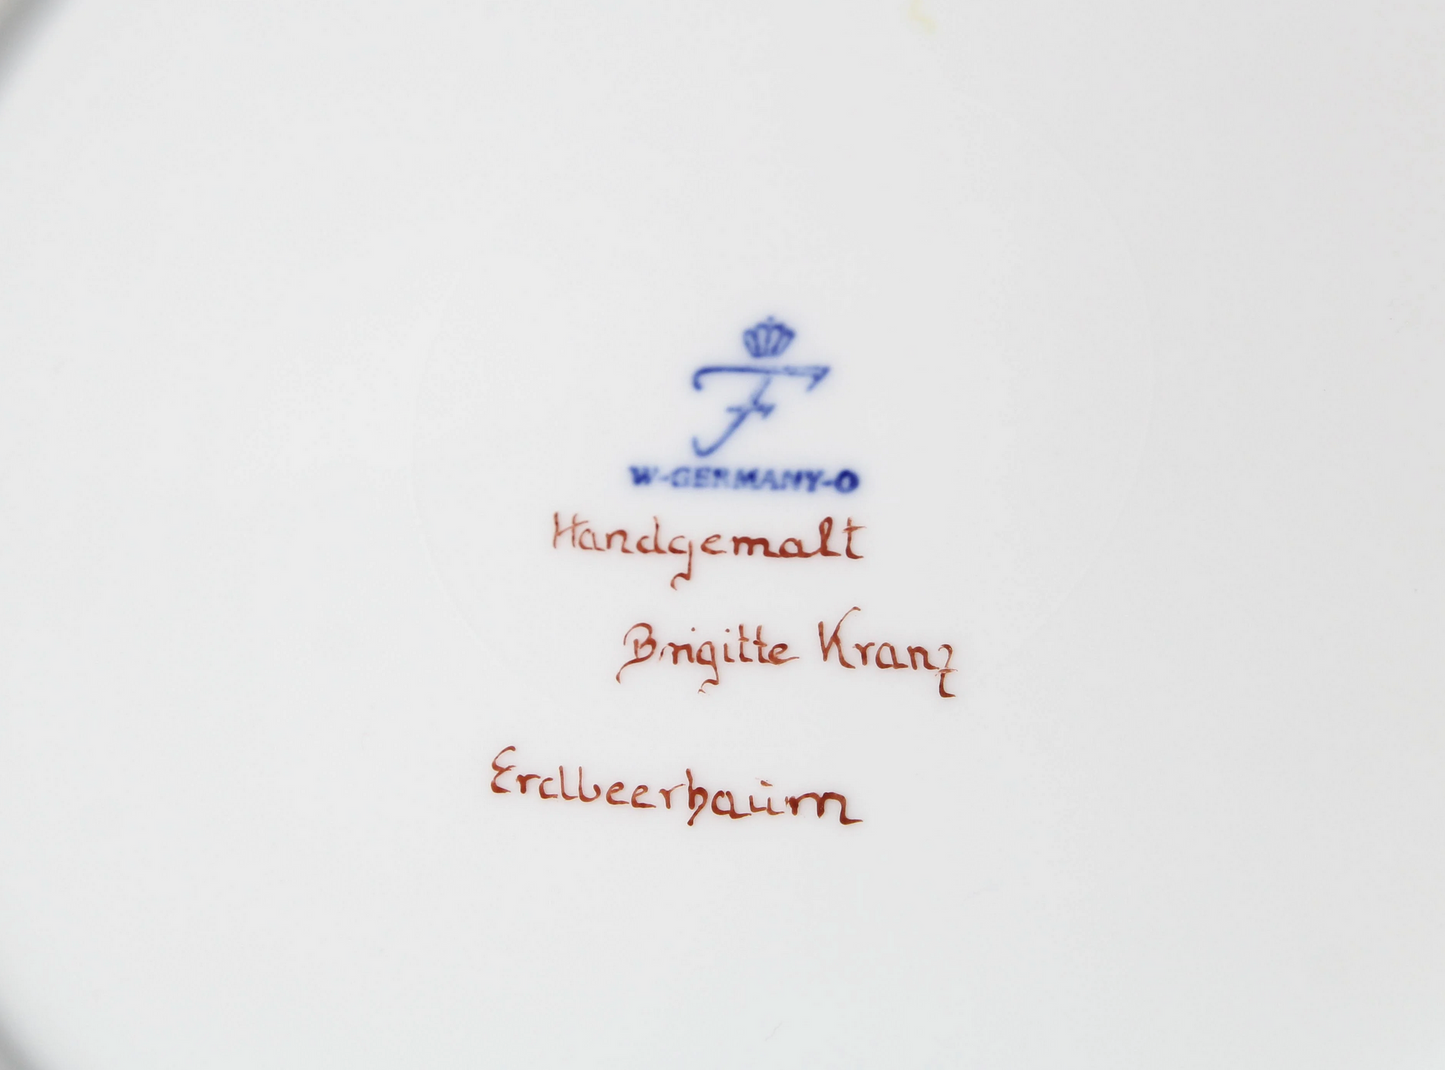 F
W-GERMANY-O
Handgemalt
Brigitte Kranz
Erdbeerbaum